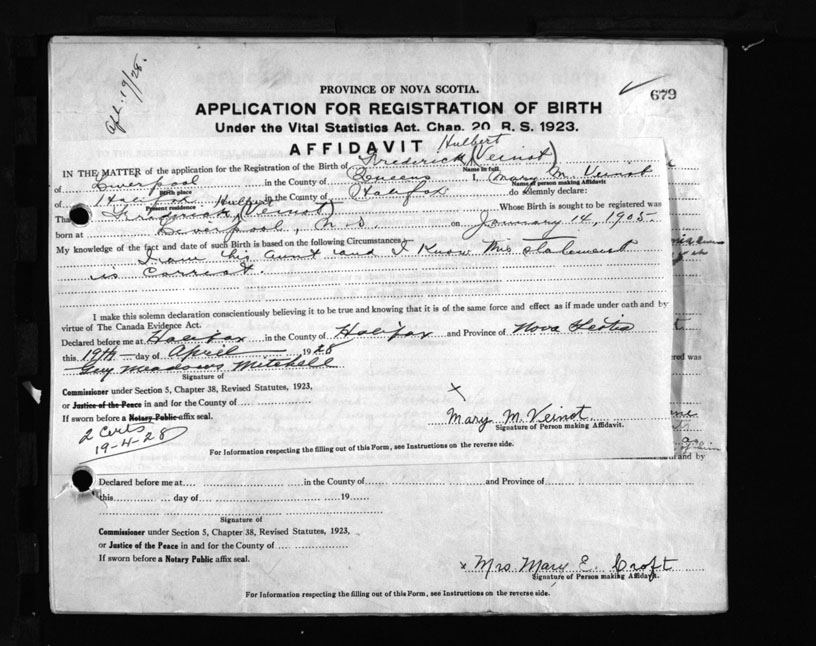 Apl. 19/28.
PROVINCE OF NOVA SCOTIA.
679
APPLICATION FOR REGISTRATION OF BIRTH
Under the Vital Statistics Act. Chap. 20 R. S. 1923.
AFFIDAVIT
Hulbert
IN THE MATTER of the application for the Registration of the Birth of Frederick (Veinot)
Name in full
of Liverpool in the County of Queens I, Mary M. Veinot
Birth place
Name of person making Affidavit
of Halifax in the County of Halifax do solemnly declare:
Present residence
Hulbert
That Frederick (Veinot) Whose Birth is sought to be registered was
born at Liverpool, N.S. on January 14, 1905.
My knowledge of the fact and date of such Birth is based on the following Circumstances
I am his aunt and I know this statement
is correct.
I make this solemn declaration conscientiously believing it to be true and knowing that it is of the same force and effect as if made under oath and by
virtue of The Canada Evidence Act.
Declared before me at Halifax in the County of Halifax and Province of Nova Scotia
this 19th day of April 1928
Guy Meadows Mitchell
Signature of
Commissioner under Section 5, Chapter 38, Revised Statutes, 1923,
or Justice of the Peace in and for the County of
If sworn before a Notary Public affix seal.
x
Mary M. Veinot
Signature of Person making Affidavit.
2 Certs
19-4-28
For Information respecting the filling out of this Form, see Instructions on the reverse side.
red was
and by
Declared before me at in the County of and Province of
this day of 19
Signature of
Commissioner under Section 5, Chapter 38, Revised Statutes, 1923,
or Justice of the Peace in and for the County of
If sworn before a Notary Public affix seal.
x Mrs. Mary E. Croft
Signature of Person making Affidavit.
For Information respecting the filling out of this Form, see Instructions on the reverse side.